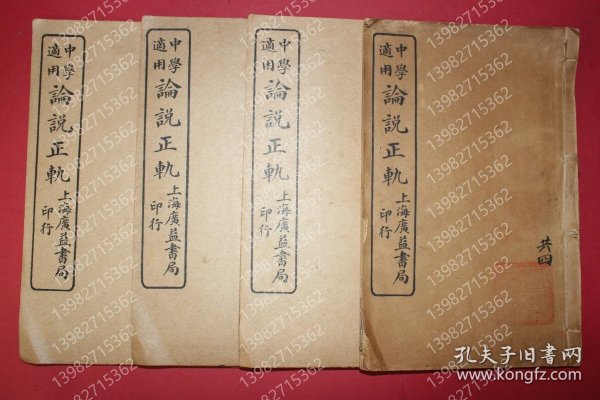 中學
適用
論說正軌
上海廣益書局
印行
共四
中學
適用
論說正軌
上海廣益書局
印行
中學
適用
論說正軌
上海廣益書局
印行
中學
適用
論說正軌
上海廣益書局
印行
13982715362
孔夫子旧书网
www.kongfz.com